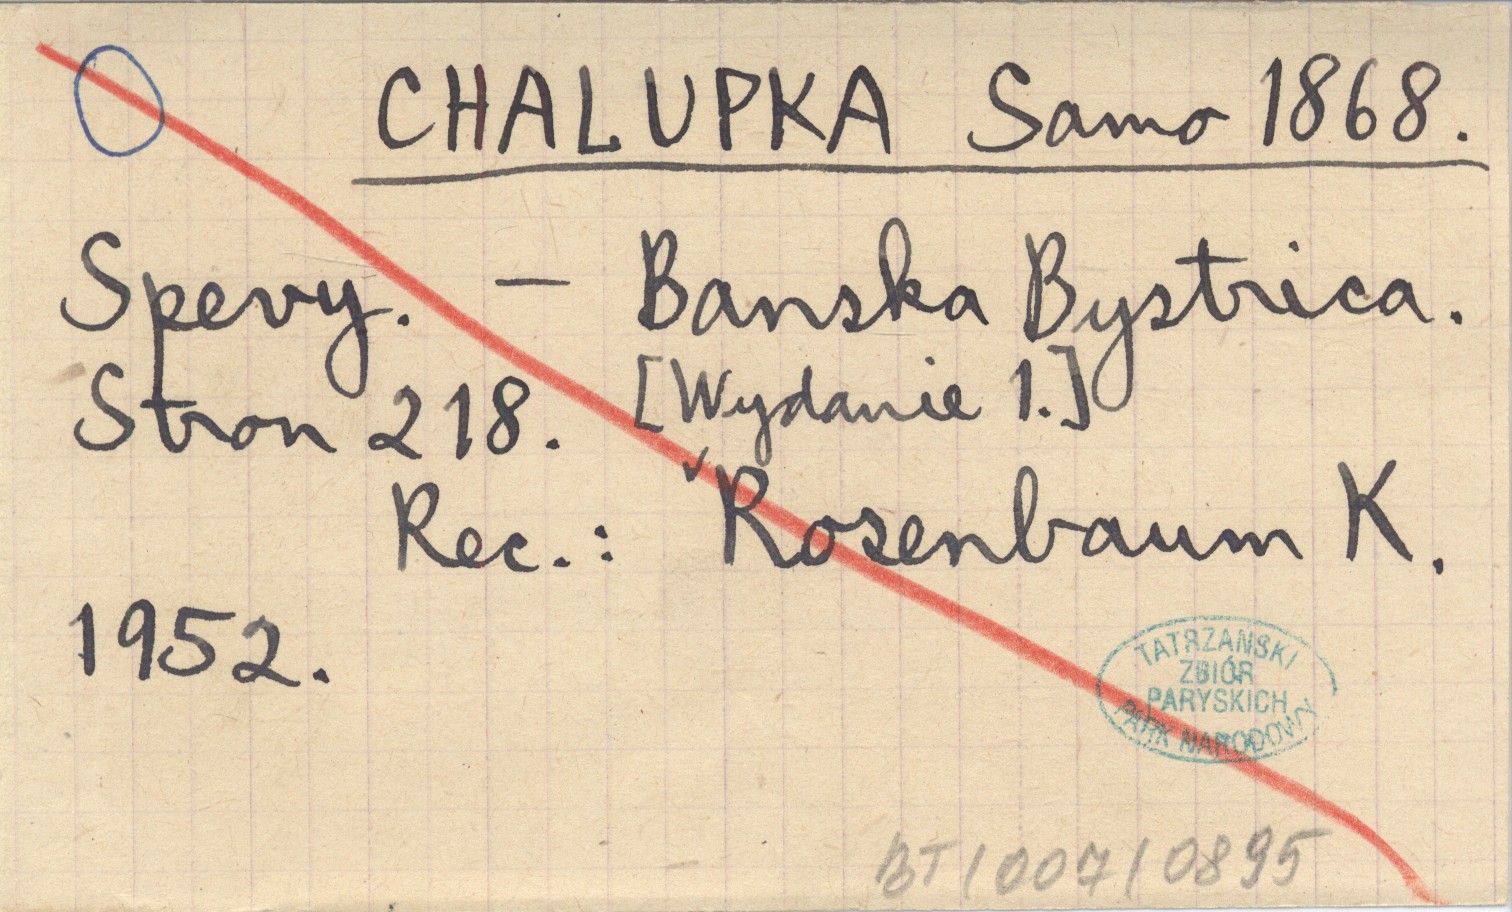 CHALUPKA Samo 1868.
Spevy. — Banska Bystrica.
Stron 218. [Wydanie 1.]
Rec.: Rosenbaum K.
1952.
TATRZAŃSKI
ZBIÓR
PARYSKICH
PARK NARODOWY
BT/007/0895